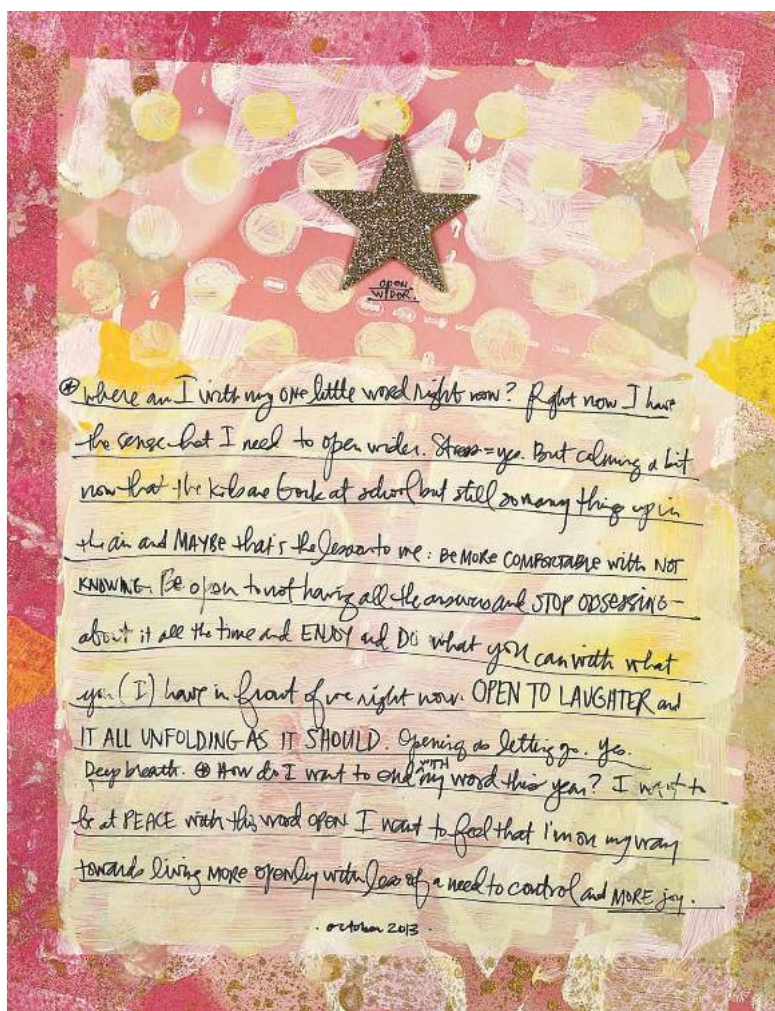 OPEN
WIDER.
⊛ where am I with my ONE little word right now? Right now I have
the sense that I need to open wider. Stress = yes. But calming a bit
now that the kids are back at school but still so many things up in
the air and MAYBE that's the lesson to me: BE MORE COMFORTABLE with NOT
KNOWING. Be open to not having all the answers and STOP OBSESSING -
about it all the time and ENJOY and DO what you can with what
you (I) have in front of me right now. OPEN TO LAUGHTER and
IT ALL UNFOLDING AS IT SHOULD. Opening as letting go. Yes.
Deep breath. ⊛ How do I want to end WITH my word this year? I want to
be at PEACE with this word OPEN I want to feel that I'm on my way
towards living MORE openly with less of a need to control and MORE joy.
· october 2013 ·